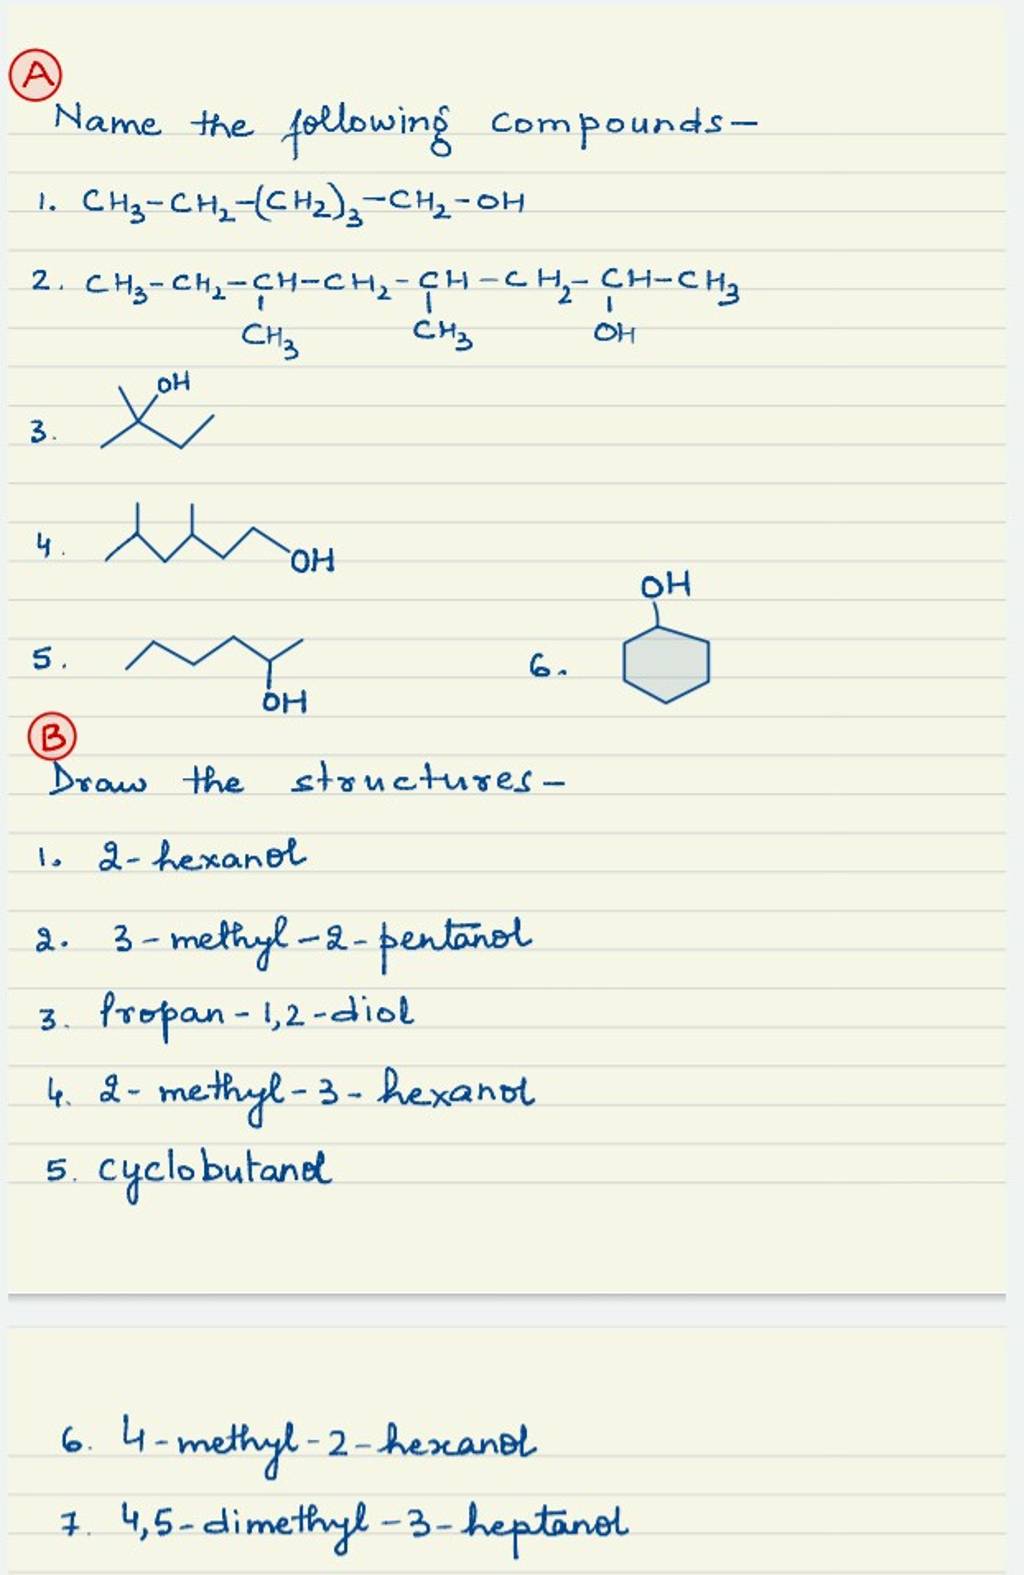 A
Name the following compounds-
1. CH3-CH2-(CH2)3-CH2-OH
2. CH3-CH2-CH-CH2-CH-CH2-CH-CH3
CH3 CH3 OH
OH
3.
4. OH
OH
5. 6.
OH
B
Draw the structures-
1. 2-hexanol
2. 3-methyl-2-pentanol
3. Propan-1,2-diol
4. 2-methyl-3-hexanol
5. cyclobutanol
6. 4-methyl-2-hexanol
7. 4,5-dimethyl-3-heptanol